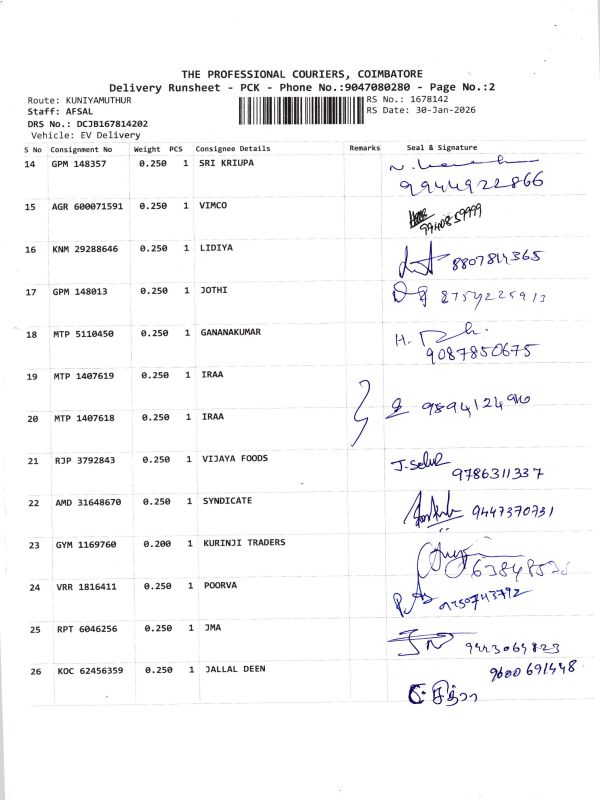 THE PROFESSIONAL COURIERS, COIMBATORE
Delivery Runsheet - PCK - Phone No.:9047080280 - Page No.:2
Route: KUNIYAMUTHUR RS No.: 1678142
Staff: AFSAL RS Date: 30-Jan-2026
DRS No.: DCJB167814202
Vehicle: EV Delivery
S No Consignment No Weight PCS Consignee Details Remarks Seal & Signature
14 GPM 148357 0.250 1 SRI KRIUPA
9944922866
15 AGR 600071591 0.250 1 VIMCO
9940859999
16 KNM 29288646 0.250 1 LIDIYA
8807814365
17 GPM 148013 0.250 1 JOTHI
18 MTP 5110450 0.250 1 GANANAKUMAR
9087850675
19 MTP 1407619 0.250 1 IRAA
20 MTP 1407618 0.250 1 IRAA
21 RJP 3792843 0.250 1 VIJAYA FOODS
9786311337
22 AMD 31648670 0.250 1 SYNDICATE 9447370731
23 GYM 1169760 0.200 1 KURINJI TRADERS
24 VRR 1816411 0.250 1 POORVA
25 RPT 6046256 0.250 1 JMA 9443064823
26 KOC 62456359 0.250 1 JALLAL DEEN 9600691448